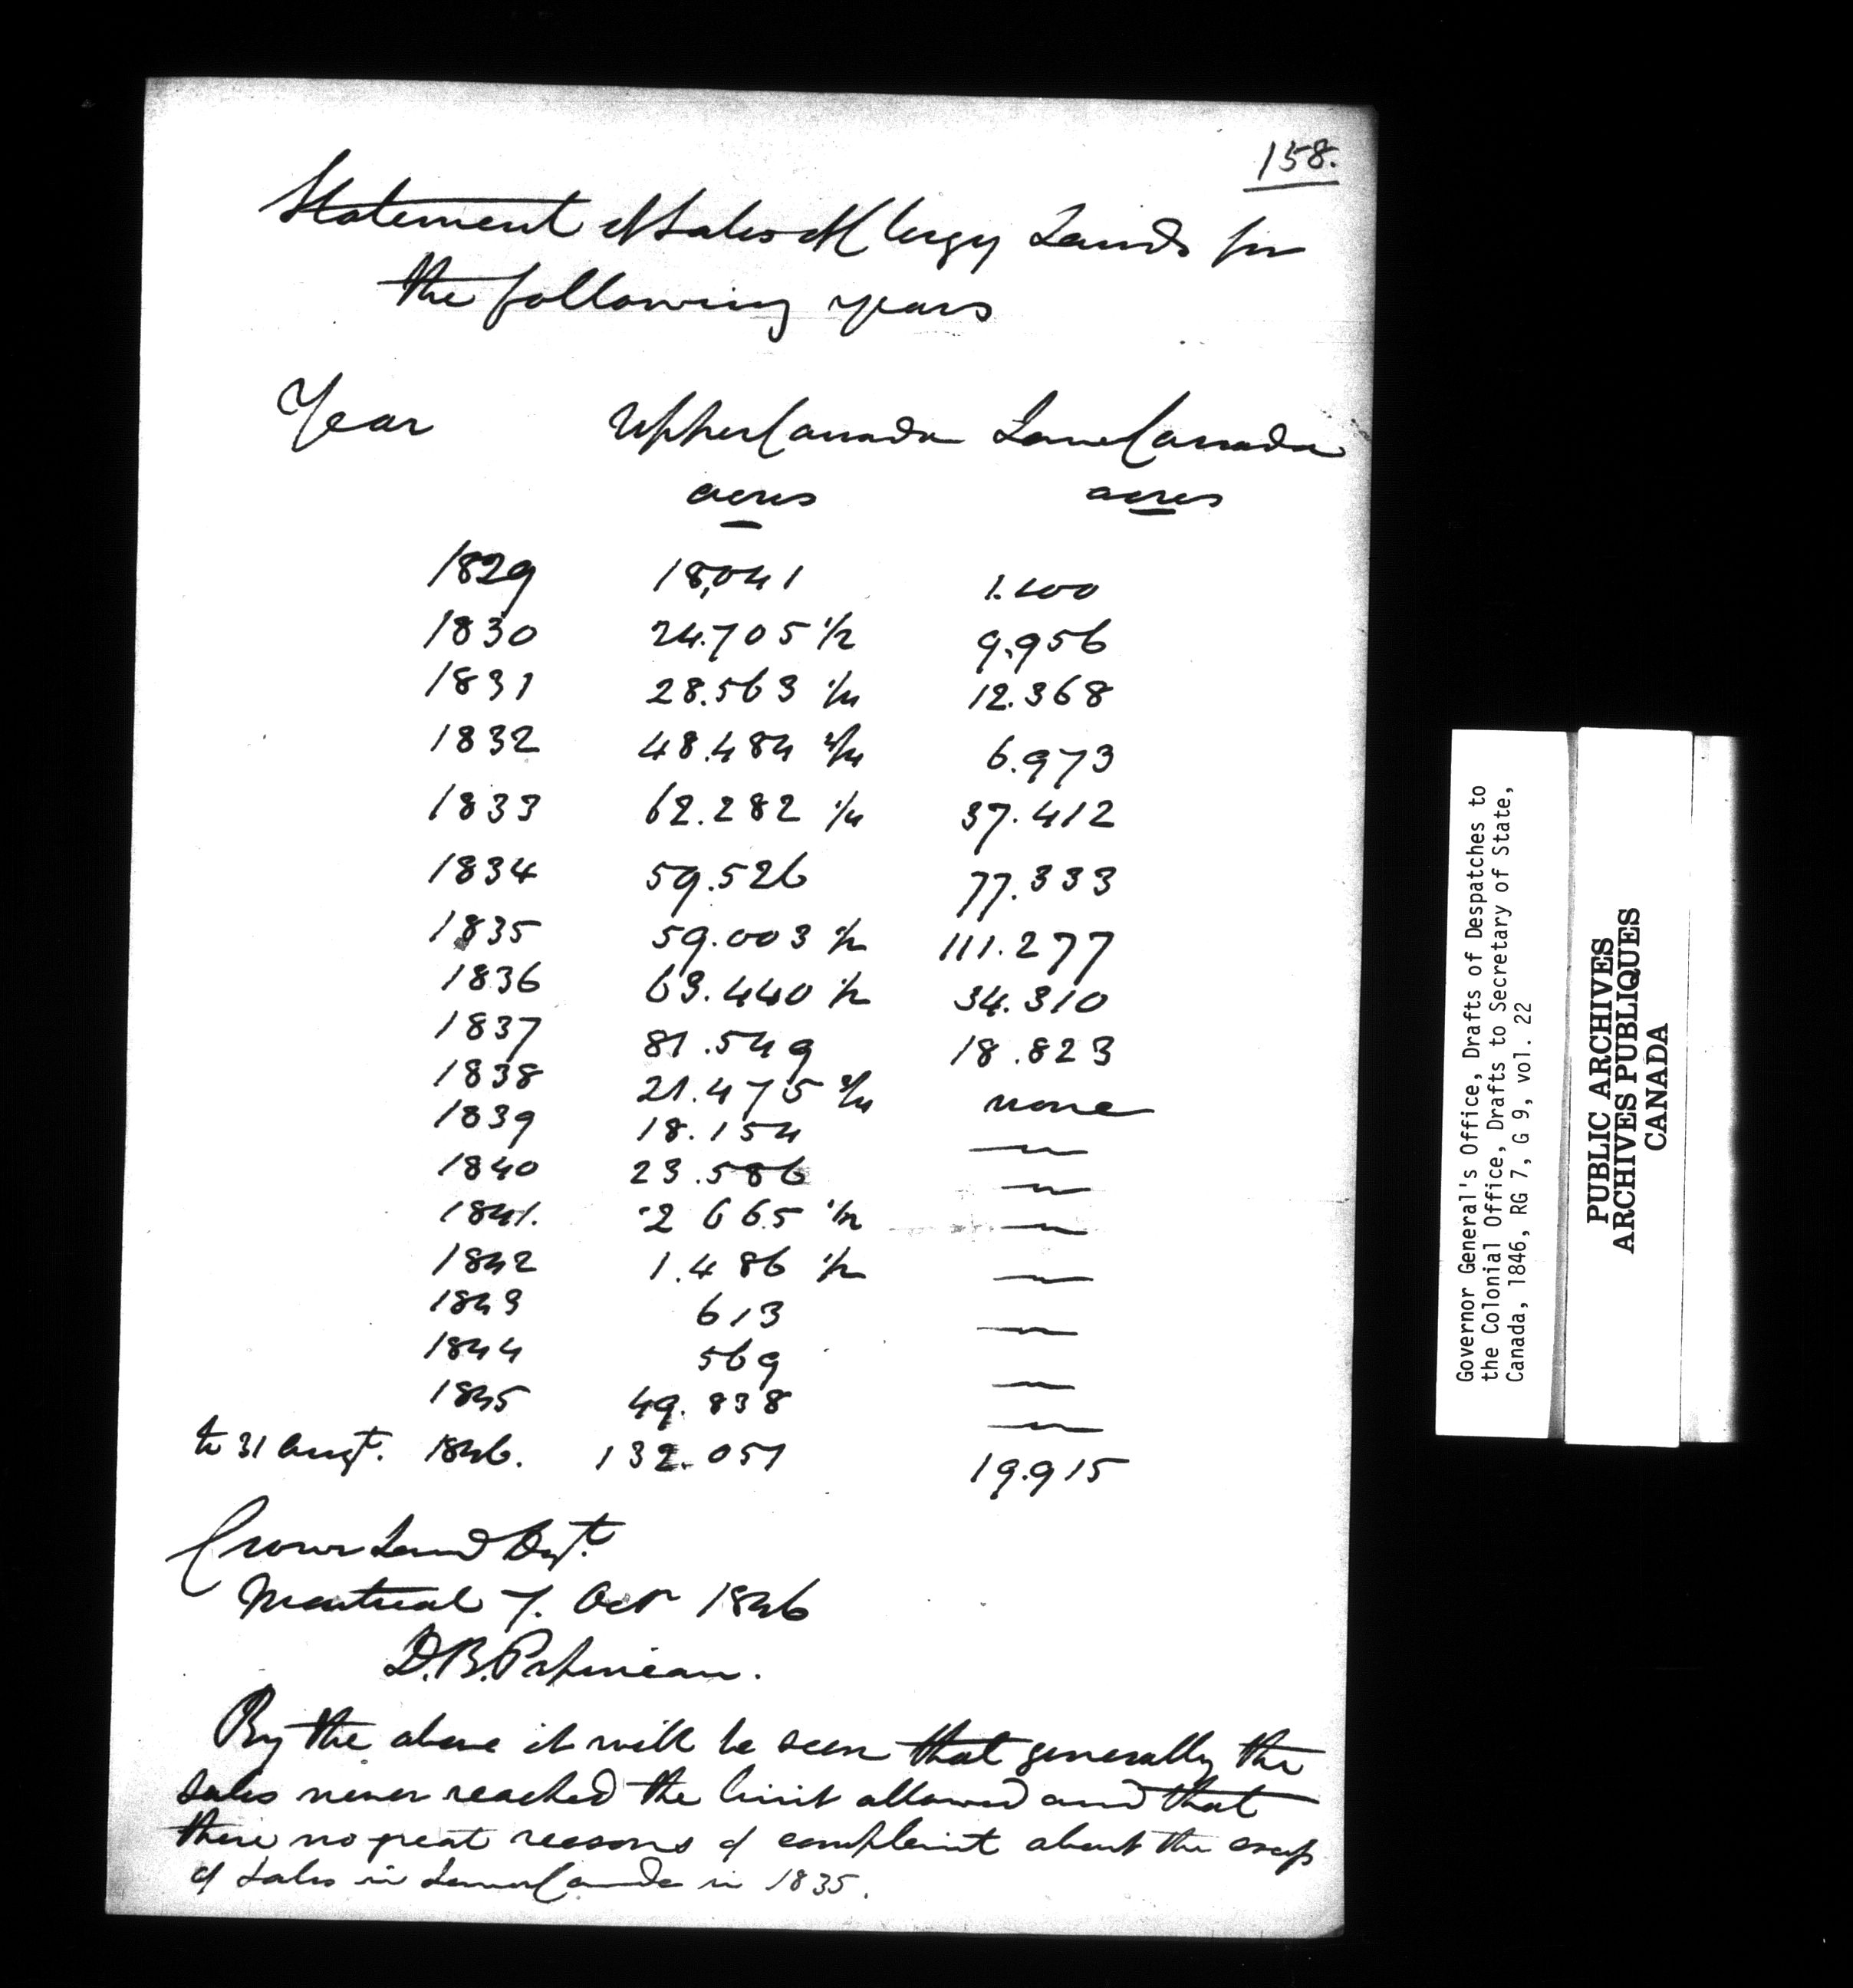 158.
Statement of Sales of Clergy Lands for
the following years
Year Upper Canada Lower Canada
acres acres
1829 18,041 1.100
1830 24.705 1/2 9.956
1831 28.563 1/4 12.368
1832 48.484 3/4 6.973
1833 62.282 1/4 37.412
1834 59.526 77.333
1835 59.003 1/2 111.277
1836 63.440 1/2 34.310
1837 81.549 18.823
1838 21.475 3/4 none
1839 18.154 —
1840 23.586 —
1841. 2 665 1/2 —
1842 1.486 1/2 —
1843 613 —
1844 569 —
1845 49.838 —
to 31 Augt. 1846. 132.051 19.915
Crown Land Dept.
Montreal 7. Octr 1846
D.B. Papineau.
By the above it will be seen that generally the
sales never reached the limit allowed and that
there no great reasons of complaint about the excess
of sales in Lower Canada in 1835.
Governor General's Office, Drafts of Despatches to
the Colonial Office, Drafts to Secretary of State,
Canada, 1846, RG 7, G 9, vol. 22
PUBLIC ARCHIVES
ARCHIVES PUBLIQUES
CANADA